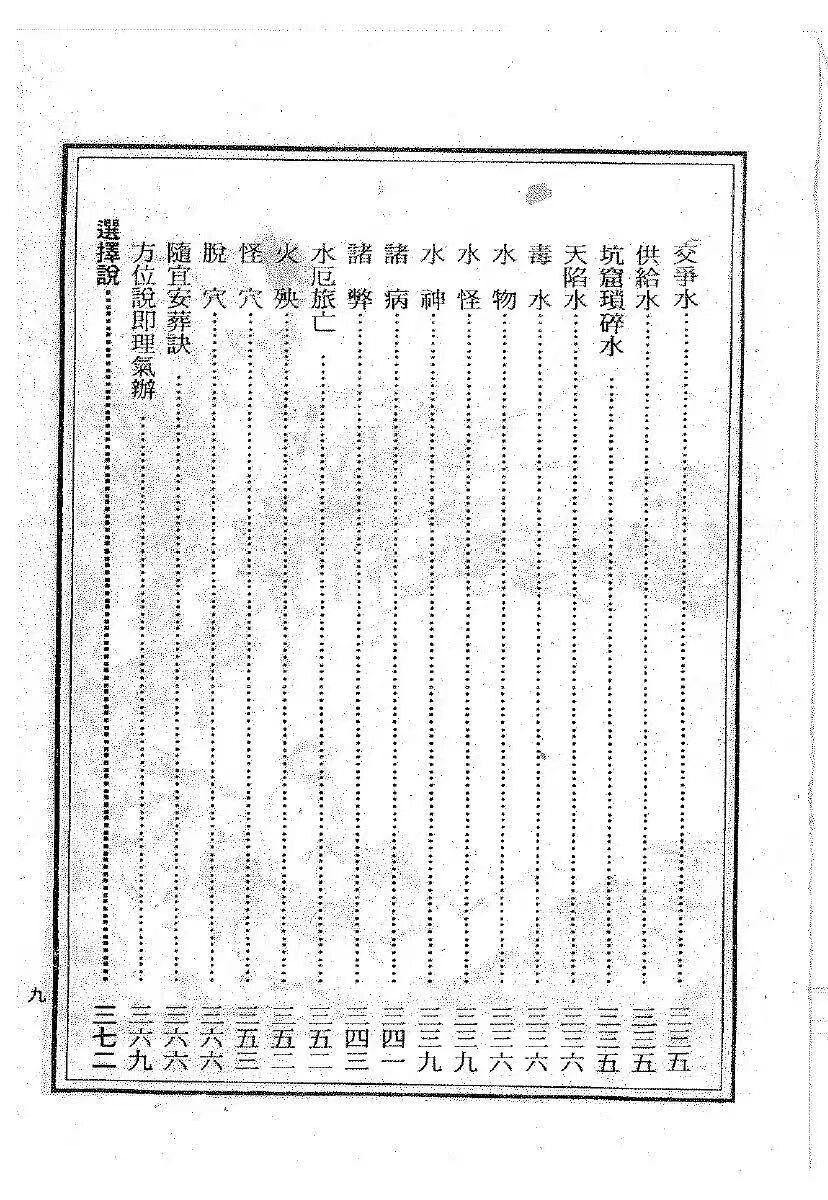 交爭水……三三五
供給水……三三五
坑窟瑣碎水……三三五
天陷水……三三六
毒水……三三六
水物……三三六
水怪……三三九
水神……三三九
諸病……三四一
諸弊……三四三
水厄旅亡……三五二
火殃……三五二
怪穴……三五三
脫穴……三六六
隨宜安葬訣……三六六
方位說即理氣辦……三六九
選擇說……三七二
九